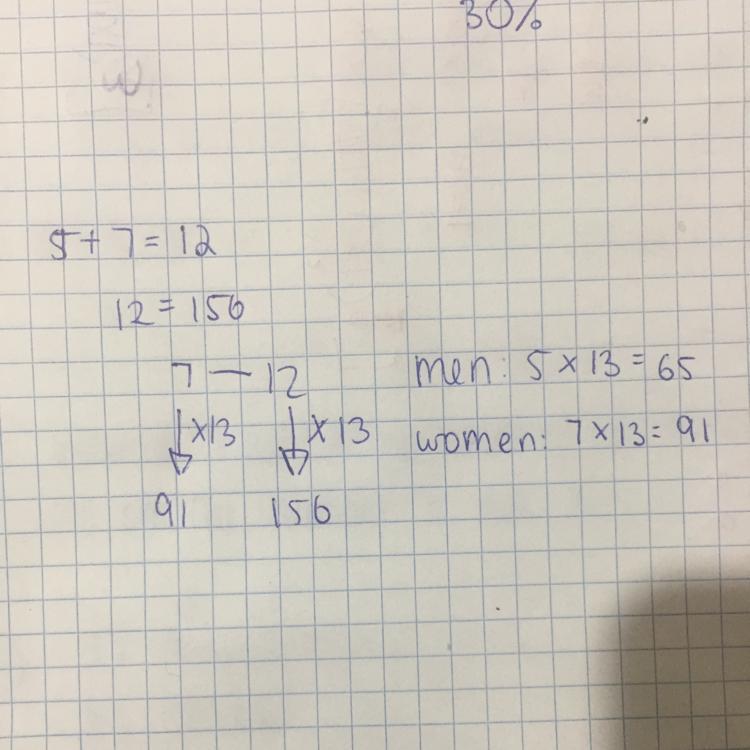 30%
5 + 7 = 12
12 = 156
7 — 12
×13 ×13
91 156
men: 5 × 13 = 65
women: 7 × 13 = 91